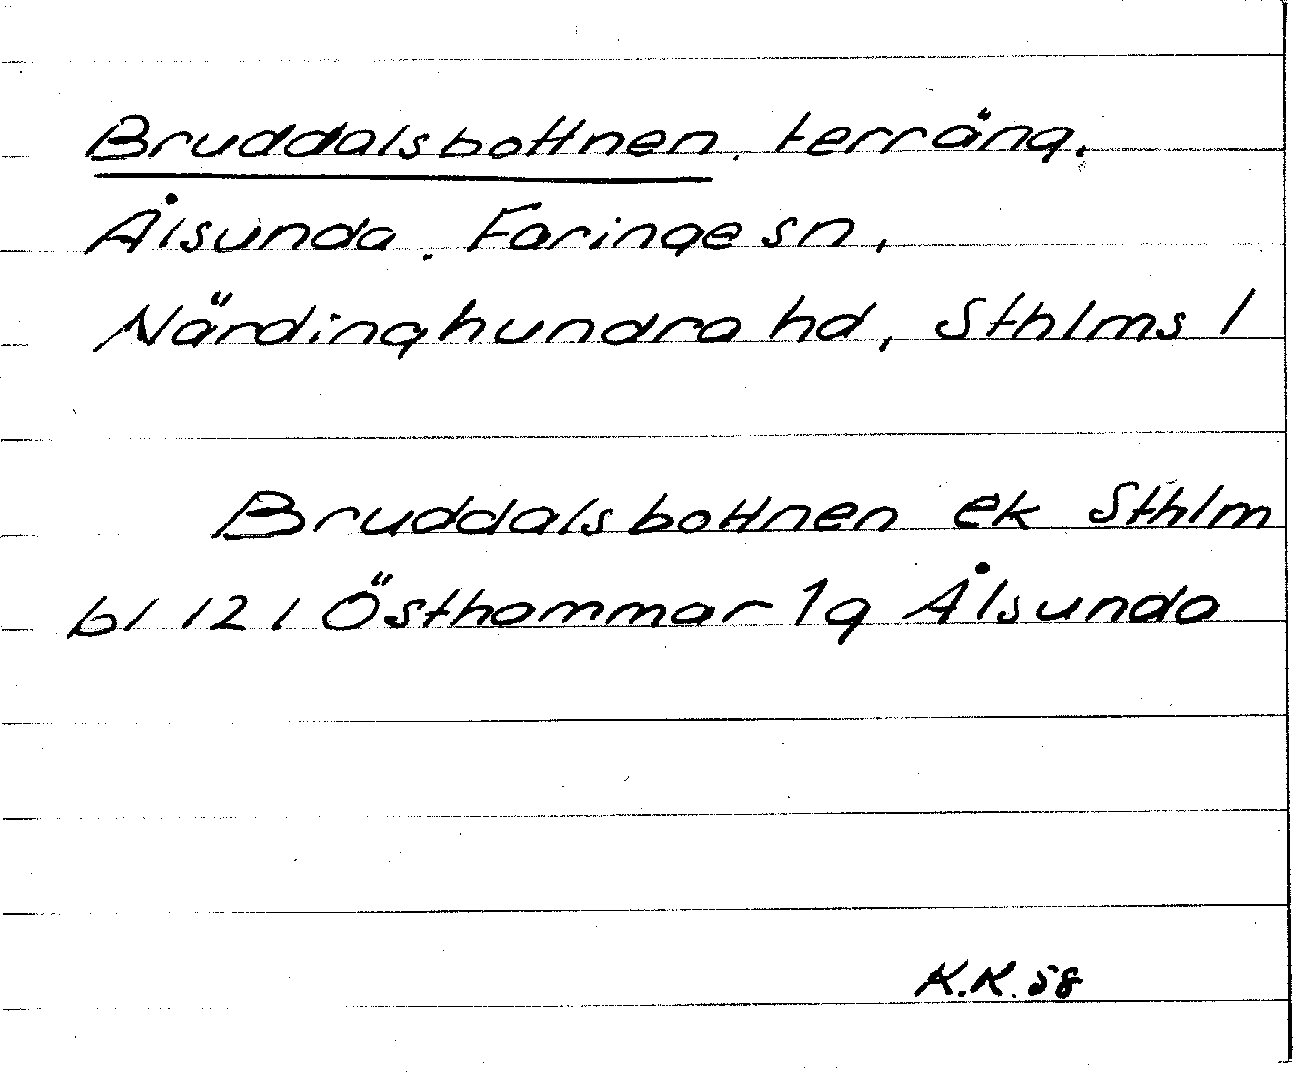 Bruddalsbottnen, terräng.
Ålsunda, Faringe sn,
Närdinghundra hd, Sthlms l
Bruddalsbottnen ek Sthlm
bl 121 Östhammar 1g Ålsunda
K.K. 58